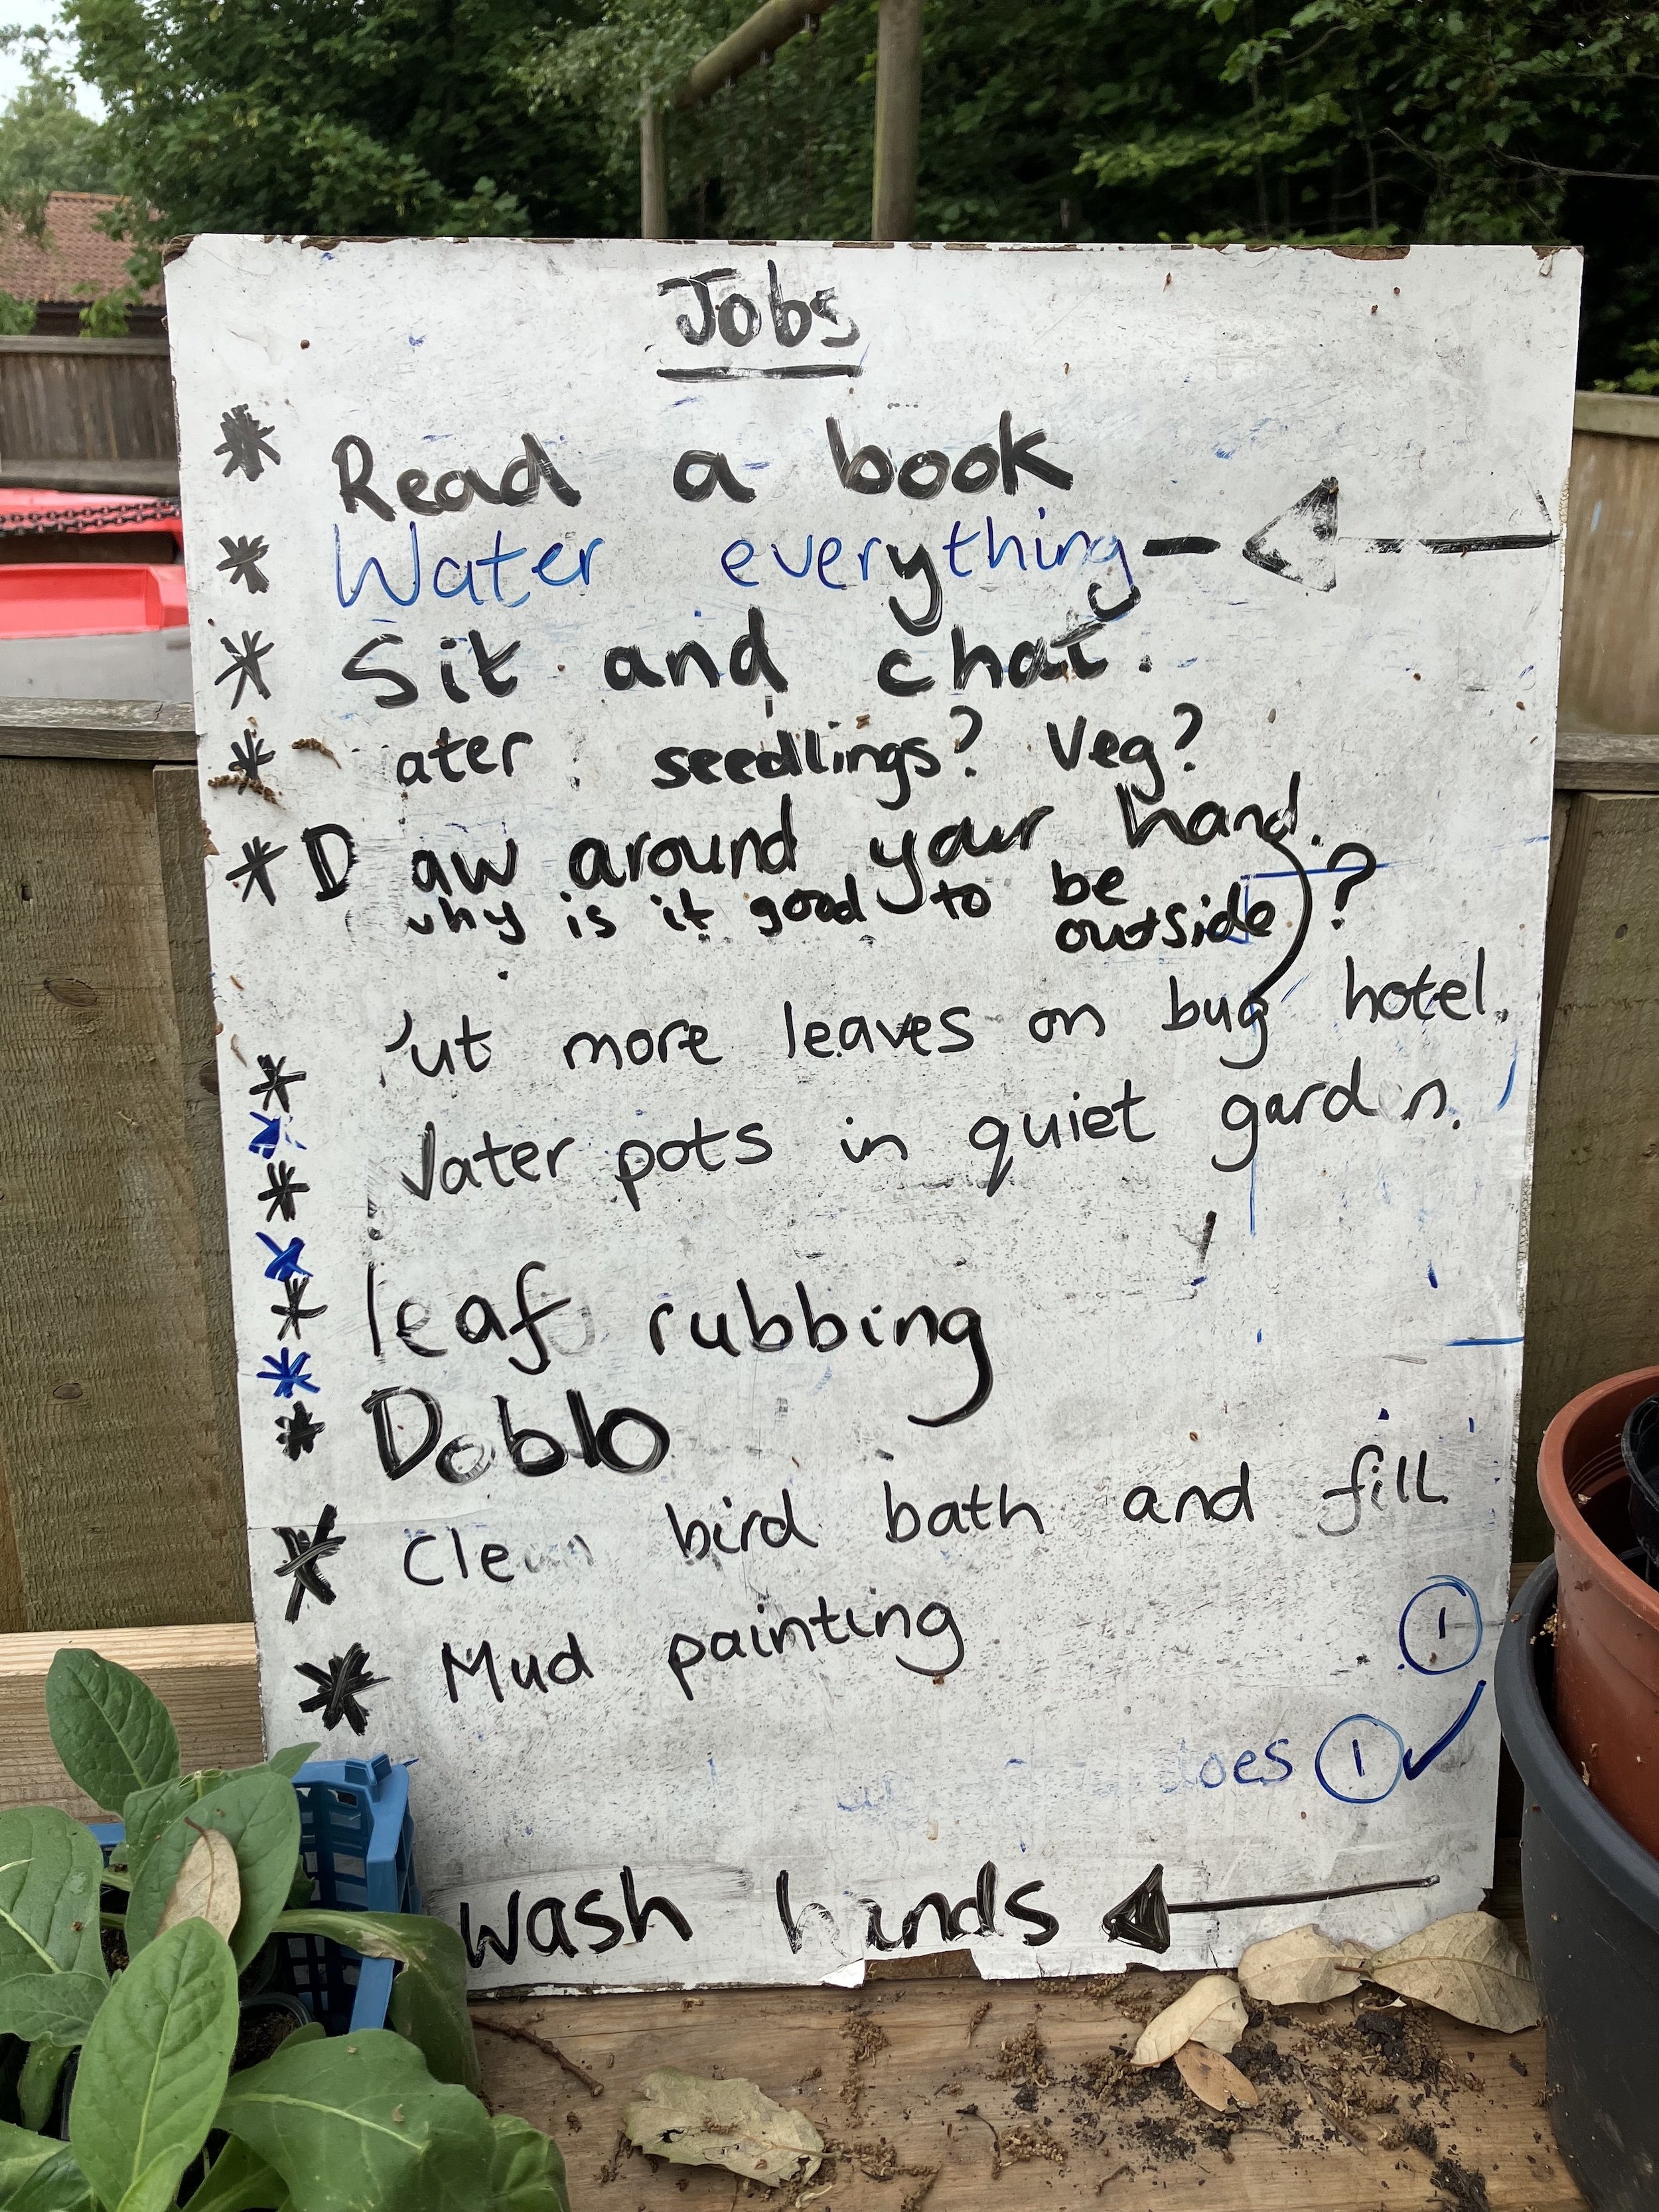 Jobs
* Read a book
* Water everything
* Sit and chat.
* ater seedlings? Veg?
* D aw around your hand.
why is it good to be
outside ?
ut more leaves on bug hotel.
* ater pots in quiet garden.
* leaf rubbing
* Doblo
* Clean bird bath and fill
* Mud painting
1
oes 1 ✓
wash hands